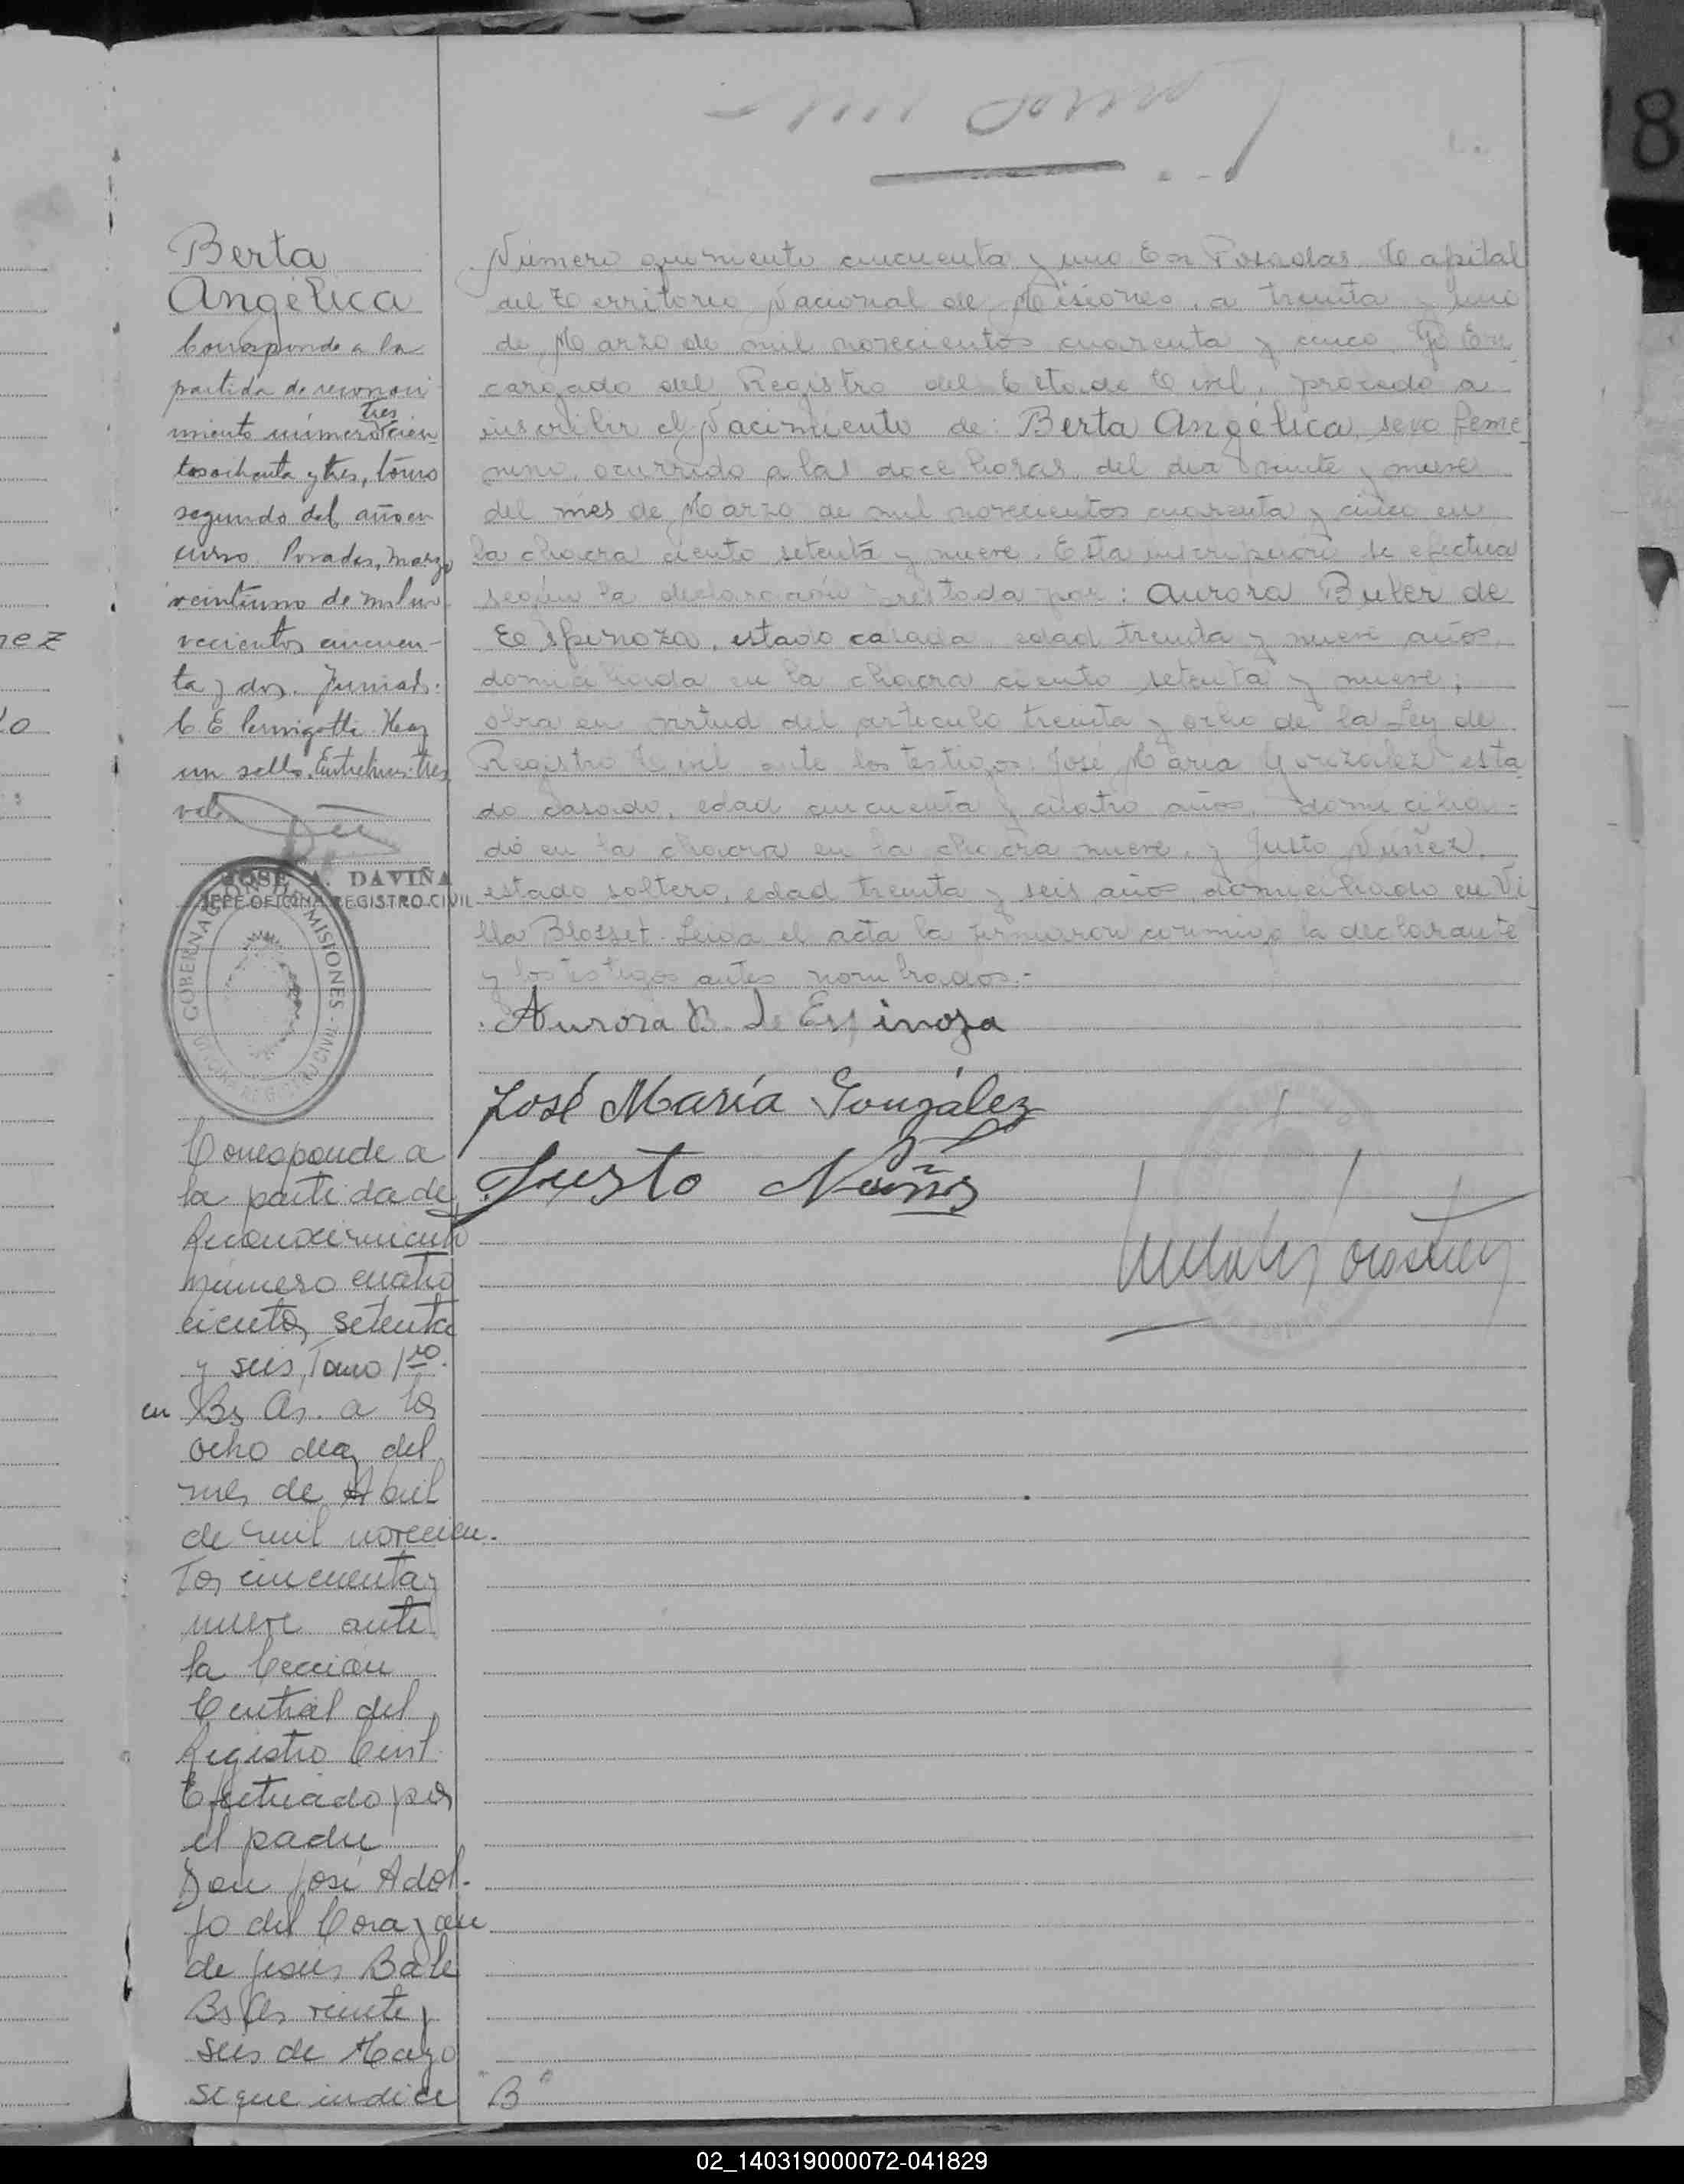 Berta
Angélica
Corresponde a la
partida de reconoci
miento número tres cien
tos ochenta y tres, tomo
segundo del año en
curso. Posadas, marzo
veintiuno de mil no
vecientos cincuen-
ta y dos.
C. E. Hay
un sello. Entrelíneas: tres
vale
JOSE A. DAVIÑA
JEFE OFICINA REGISTRO CIVIL
GOBERNACION DE MISIONES
Corresponde a
la partida de
Reconocimiento
número cuatro
cientos setenta
y seis, Tomo 1ro.
en Bs As. a los
ocho días del
mes de Abril
de mil novecien-
tos cincuenta y
nueve ante
la Sección
Central del
Registro Civil
Efectuado por
el padre
Don José Adol-
fo del Corazón
de Jesús
Bs As veinte y
seis de Mayo
sigue indice "B"
Número quinientos cincuenta y uno En Posadas Capital
del Territorio Nacional de Misiones, a treinta y uno
de Marzo de mil novecientos cuarenta y cinco. Yo En
cargado del Registro del Estado Civil, procedo a
inscribir el Nacimiento de: Berta Angélica, sexo feme
nino, ocurrido a las doce horas, del día veinte y nueve
del mes de Marzo de mil novecientos cuarenta y cinco en
la chacra ciento setenta y nueve. Esta inscripción se efectua
según la declaración prestada por: Aurora de
Espinoza, estado casada, edad treinta y nueve años,
domiciliada en la chacra ciento setenta y nueve;
obra en virtud del artículo treinta y ocho de la Ley de
Registro Civil ante los testigos: José María González esta
do casado, edad cincuenta y cuatro años, domicilia-
do en la chacra en la chacra nueve, y Justo Núñez,
estado soltero, edad treinta y seis años, domiciliado en Vi
lla Blosset. Leida el acta la firmaron conmigo la declarante
y los testigos antes nombrados.-
Aurora B. de Espinoza
José María González
Justo Núñez
nez
8
02_140319000072-041829